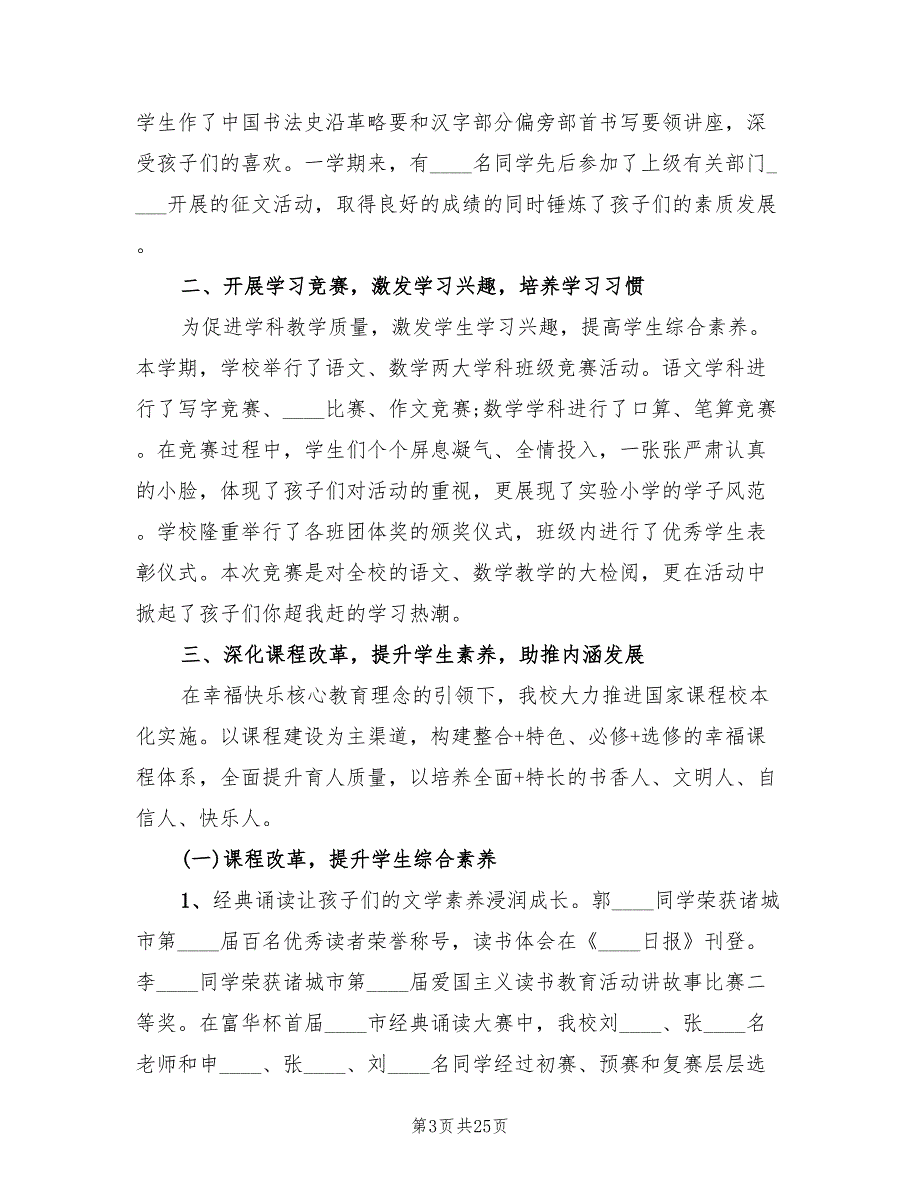 学生作了中国书法史沿革略要和汉字部分偏旁部首书写要领讲座，深
受孩子们的喜欢。一学期来，有____名同学先后参加了上级有关部门_
___开展的征文活动，取得良好的成绩的同时锤炼了孩子们的素质发展
。
二、开展学习竞赛，激发学习兴趣，培养学习习惯
为促进学科教学质量，激发学生学习兴趣，提高学生综合素养。
本学期，学校举行了语文、数学两大学科班级竞赛活动。语文学科进
行了写字竞赛、____比赛、作文竞赛;数学学科进行了口算、笔算竞赛
。在竞赛过程中，学生们个个屏息凝气、全情投入，一张张严肃认真
的小脸，体现了孩子们对活动的重视，更展现了实验小学的学子风范
。学校隆重举行了各班团体奖的颁奖仪式，班级内进行了优秀学生表
彰仪式。本次竞赛是对全校的语文、数学教学的大检阅，更在活动中
掀起了孩子们你超我赶的学习热潮。
三、深化课程改革，提升学生素养，助推内涵发展
在幸福快乐核心教育理念的引领下，我校大力推进国家课程校本
化实施。以课程建设为主渠道，构建整合+特色、必修+选修的幸福课
程体系，全面提升育人质量，以培养全面+特长的书香人、文明人、自
信人、快乐人。
(一)课程改革，提升学生综合素养
1、经典诵读让孩子们的文学素养浸润成长。郭____同学荣获诸城
市第____届百名优秀读者荣誉称号，读书体会在《____日报》刊登。
李____同学荣获诸城市第____届爱国主义读书教育活动讲故事比赛二
等奖。在富华杯首届____市经典诵读大赛中，我校刘____、张____名
老师和申____、张____、刘____名同学经过初赛、预赛和复赛层层选
第3页共25页